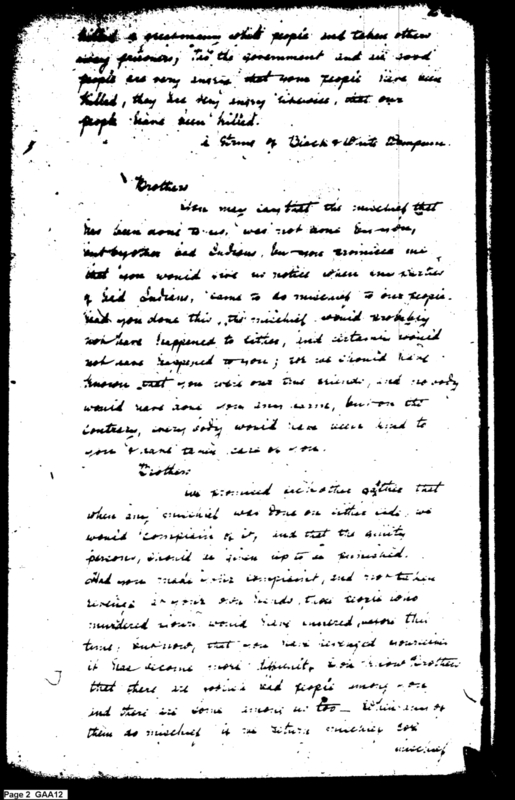 killed a great many white people and taken others
away prisoners, tis the government and all good
people are very angry that your people have been
killed, they are very angry likewise, that our
people have been killed.
a String of Black & White Wampum.
Brothers
You may say that the mischief that
has been done to us, was not done by you,
but by other bad Indians, but you promised me
that you would give us notice when any parties
of bad Indians, came to do mischief to our people.
Had you done this, the mischief would probably
not have happened to either, and certainly would
not have happened to you; for we should have
known that you were our true friends, and nobody
would have done you any harm, but on the
contrary, every body would have been kind to
you & have taken care of you.
Brothers
We promised each other that
when any mischief was done on either side, we
would complain of it, and that the guilty
persons, should be given up to be punished.
Had you made your complaint, and not taken
revenge at your own hands, those people who
murdered yours would have suffered, before this
time; but now, that you have revenged yourselves
it has become more difficult. You know Brothers
that there are some bad people among you
and there are some among us too
them do mischief if we return mischief for
mischief
Page 2 GAA12